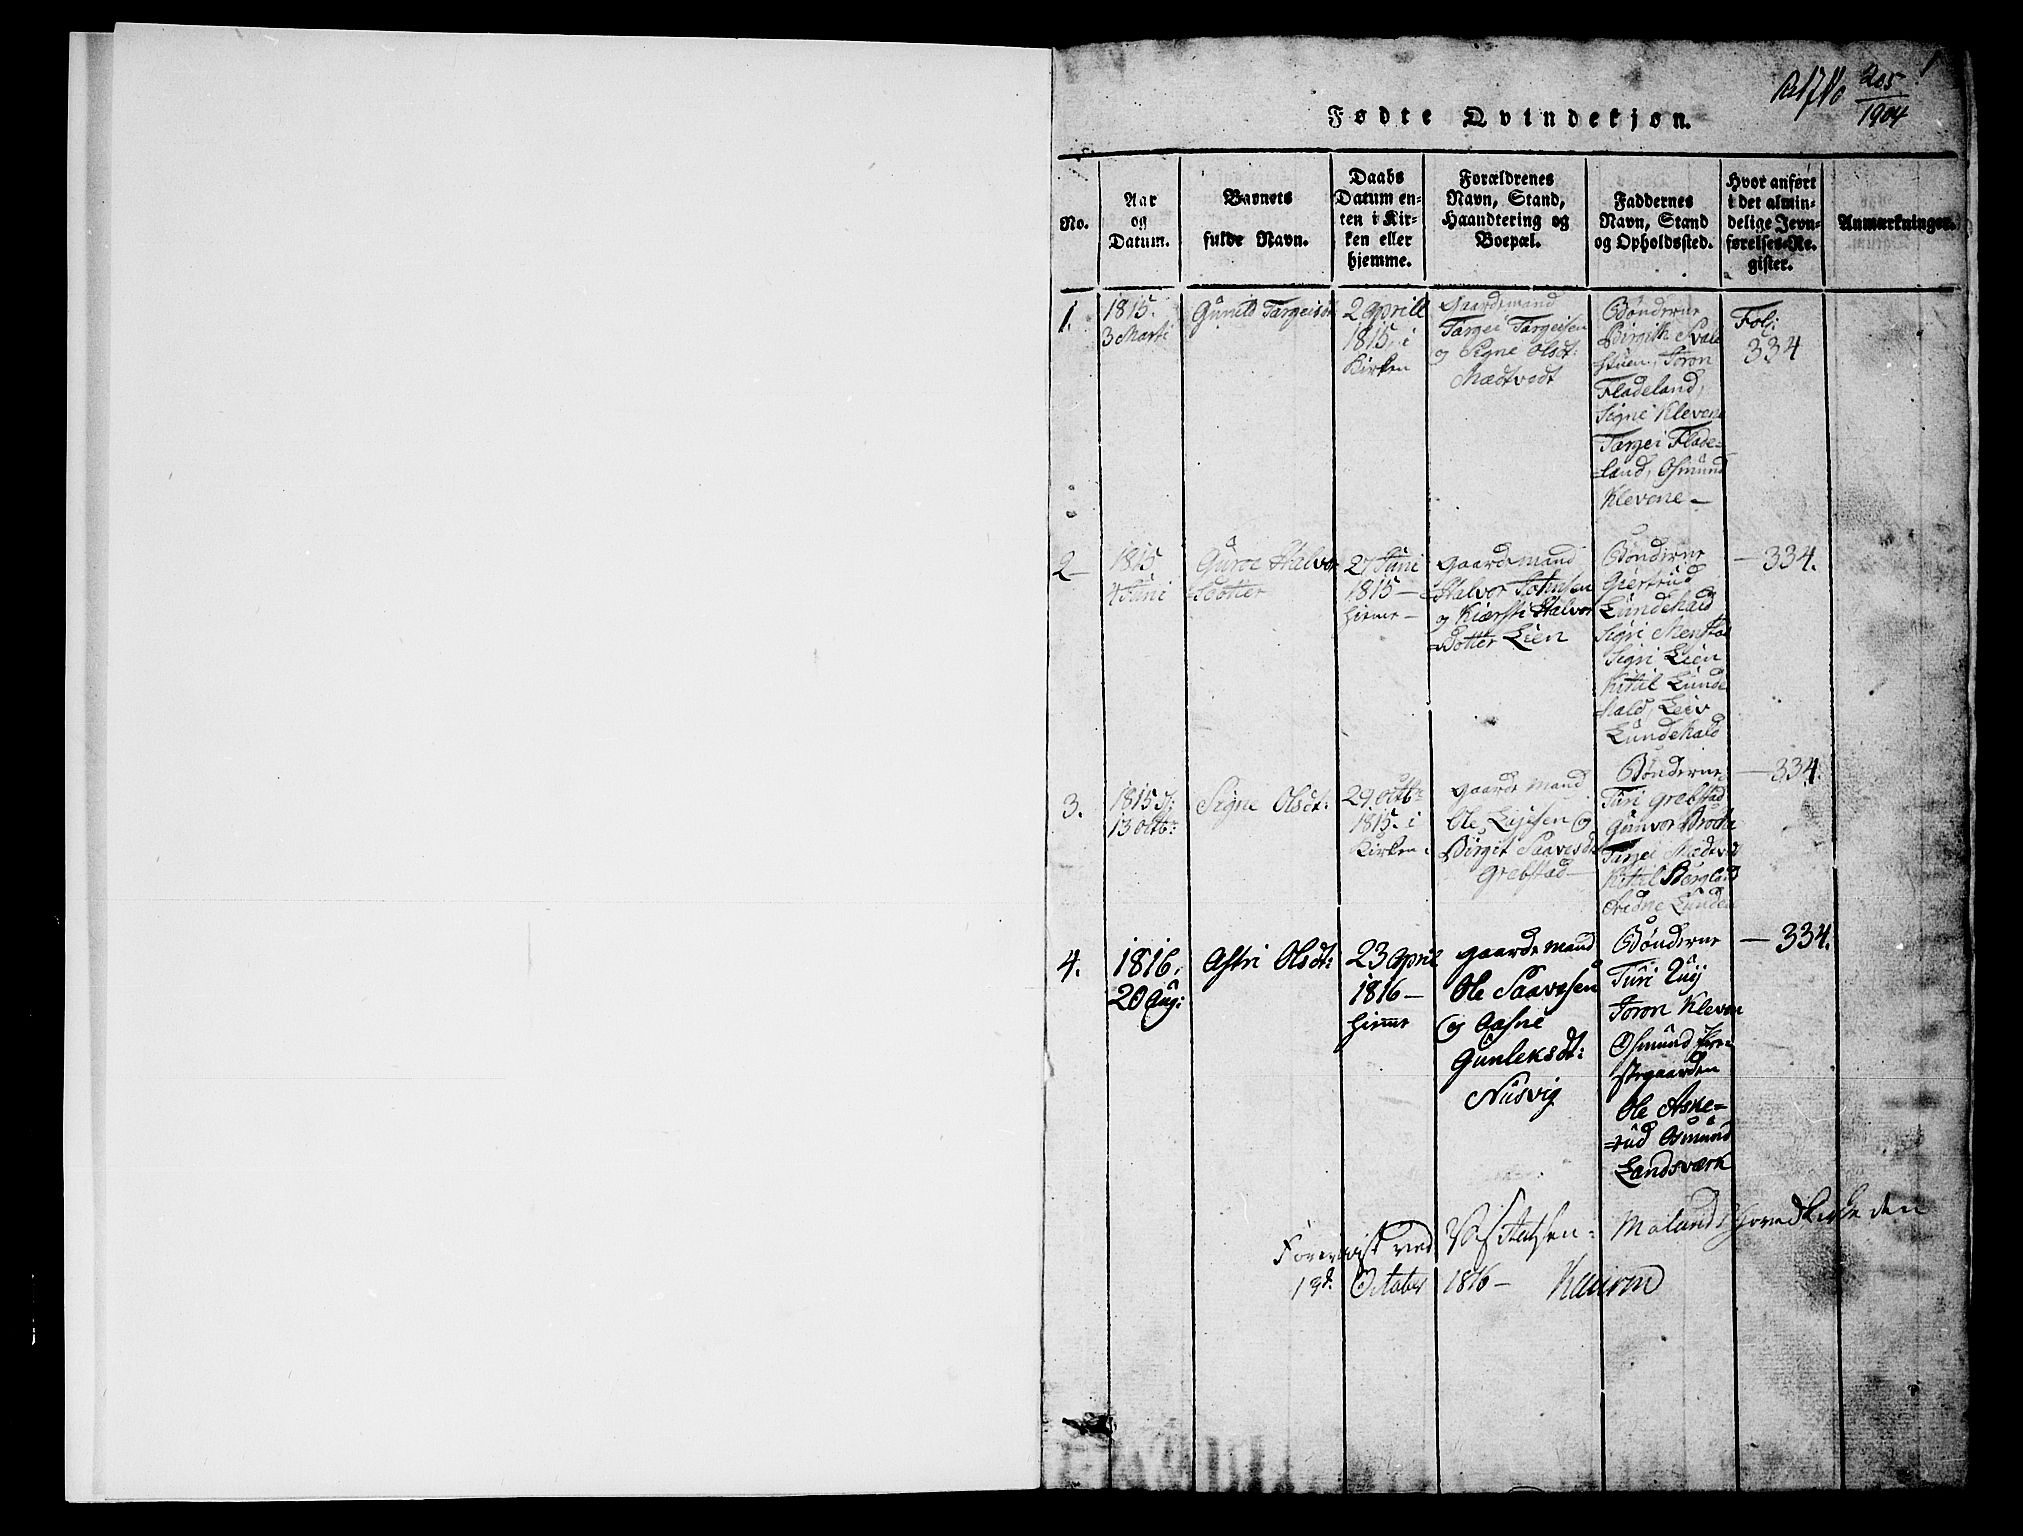 1
205
1904
Fødte Qvindekjøn.
No.
Aar
og
Datum.
Barnets
fulde Navn.
Daabs
Datum en-
ten i Kir-
ken eller
hjemme.
Forældrenes
Navn, Stand,
Haandtering og
Boepæl.
Faddernes
Navn, Stand
og Opholdssted.
Hvor anført
i det almin-
delige Jevn-
førelses-Re-
gister.
Anmærkninger.
1.
1815.
3 Marti
Gunild Targeisdt
2 Aprill
1815, i
Kirken
Gaardemand
Targei Targeisen
og Signe Olsdt:
Mædtvedt
Bønderne
Birgith Svale
stuen, Toron
Fladeland,
Signe Klevene
Targei Flade-
land, Osmund
Klevene -
Fol:
334
2
1815
4 Juni
Guroe Halvor
Dotter
27 Juni
1815 -
hiemme -
Gaardemand
Halvor Johnsen
og Kiersti Halvor
Dotter Lien
Bønderne
Giertrud
Lundehald
Sigri Menstad
Sigri Lien
Kittil Lunde
hald, Leiv
Lundehald
- 334.
3.
1815 d:
13 Octb:
Signe Olsdt:
29 Octb:
1815. i
Kirken:
Gaardemand
Ole Leifsen og
Birgit Saavesdt
Grebstad -
Bønderne
Turi Grebstad
Gunvor Brocke
Targei Mædtved
Kittil Bergland
Aredne Lunden
- 334.
4.
1816.
20 Aug:
Astri Olsdt:
23 April
1816 -
hiemme
Gaardemand
Ole Saavesen
og Aasne
Gunleksdt:
Nusvig
Bønderne
Turi Quij
Toron Kleven
Osmund Pre-
stegaarden
Ole Aske-
rud Osmund
Landsværk
- 334.
Foreviist ved Visitatsen: Molands Hovedkirke den
13d. October 1816 -